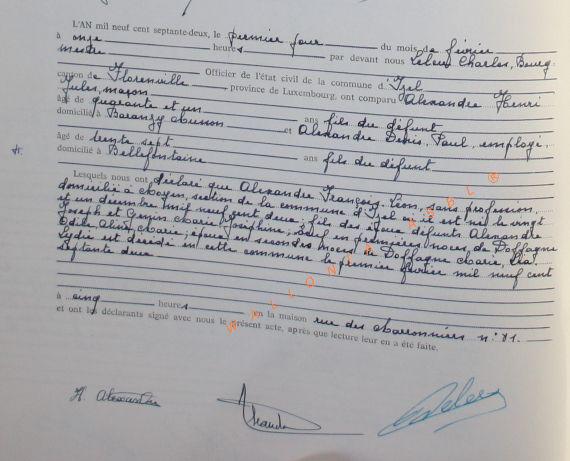 L'AN mil neuf cent septante-deux, le premier jour du mois de février
à onze heures par devant nous Leleux Charles, Bourg-
mestre
canton de Florenville Officier de l'état civil de la commune d'Izel
province de Luxembourg, ont comparu Alexandre Henri
Jules, maçon
âgé de quarante et un ans fils du défunt
domicilié à Baranzy Musson et Alexandre Denis, Paul, employé,
âgé de trente sept ans fils du défunt
domicilié à Bellefontaine
Lesquels nous ont déclaré que Alexandre François, Léon, sans profession,
domicilié à Moyen, section de la commune d'Izel où il est né le vingt
et un décembre mil neuf cent deux; fils des époux défunts Alexandre
Joseph et Marie, Joséphine; veuf en premières noces de Doffagne
Odile, Aline, Marie; époux en secondes noces de Doffagne Marie, Lia,
Lydie est décédé en cette commune le premier février mil neuf cent
septante deux
à cinq heures en la maison rue des n° 81.
et ont les déclarants signé avec nous le présent acte, après que lecture leur en a été faite.
H. Alexandre